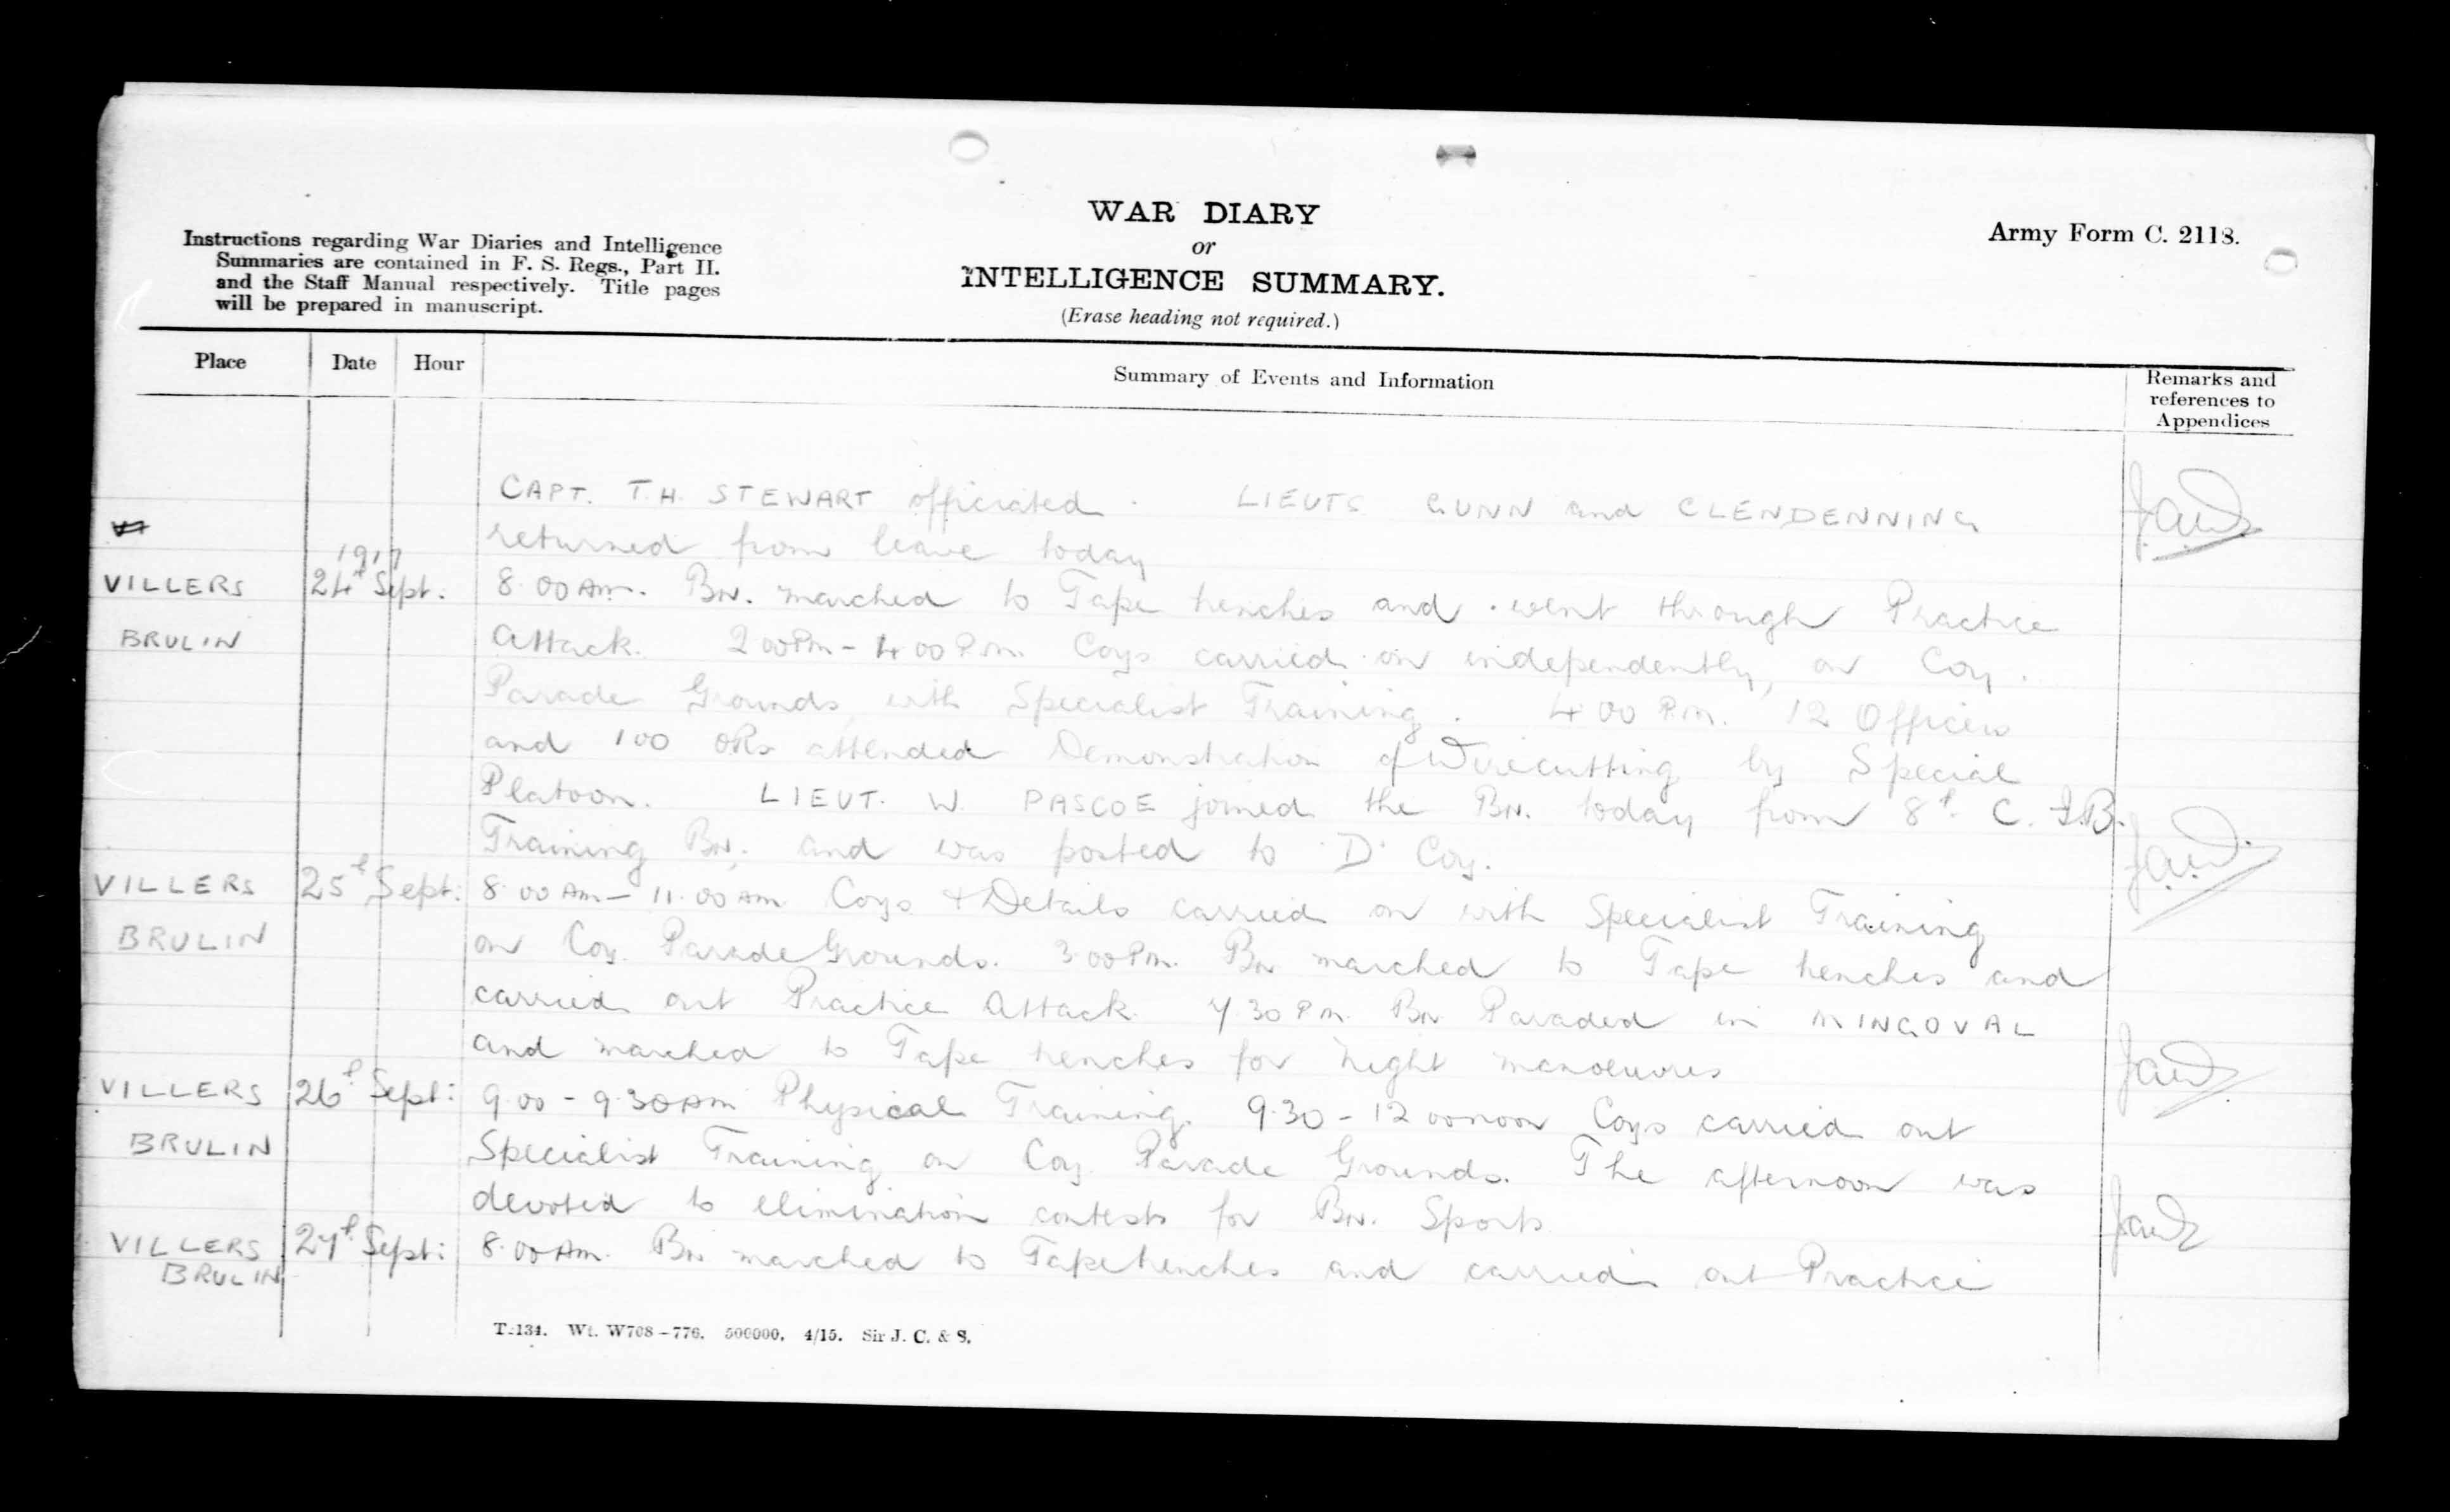 WAR DIARY
or
INTELLIGENCE SUMMARY.
(Erase heading not required.)
Army Form C. 2118.
Instructions regarding War Diaries and Intelligence
Summaries are contained in F. S. Regs., Part II.
and the Staff Manual respectively. Title pages
will be prepared in manuscript.
Place Date Hour Summary of Events and Information Remarks and
references to
Appendices
CAPT. T.H. STEWART officiated. LIEUTS GUNN and CLENDENNING
returned from leave today
1917
VILLERS 24th Sept: 8.00 Am. Bn. marched to Tape trenches and went through Practice
BRULIN Attack. 2 00 Pm - 4 00 P.m. Coys carried on independently, on Coy.
Parade Grounds with Specialist Training. 4 00 P.m. 12 Officers
and 100 ORs attended Demonstration of Wirecutting by Special
Platoon. LIEUT. W. PASCOE joined the Bn. today from 8th C.
Training Bn. and was posted to 'D' Coy.
VILLERS 25th Sept: 8.00 Am - 11.00 am Coys & Details carried on with Specialist Training
BRULIN on Coy. Parade Grounds. 3.00 Pm. Bn marched to Tape trenches and
carried out Practice Attack. 7.30 Pm. Bn Paraded in MINGOVAL
and marched to Tape trenches for night manoeuvres
VILLERS 26th Sept: 9.00 - 9.30 am Physical Training. 9.30 - 12 00 noon Coys carried out
BRULIN Specialist Training on Coy. Parade Grounds. The afternoon was
devoted to elimination contests for Bn. Sports.
VILLERS 27th Sept: 8.00 Am. Bn marched to Tape trenches and carried out Practice
BRULIN
T.134. Wt. W708-776. 500000. 4/15. Sir J. C. & S.